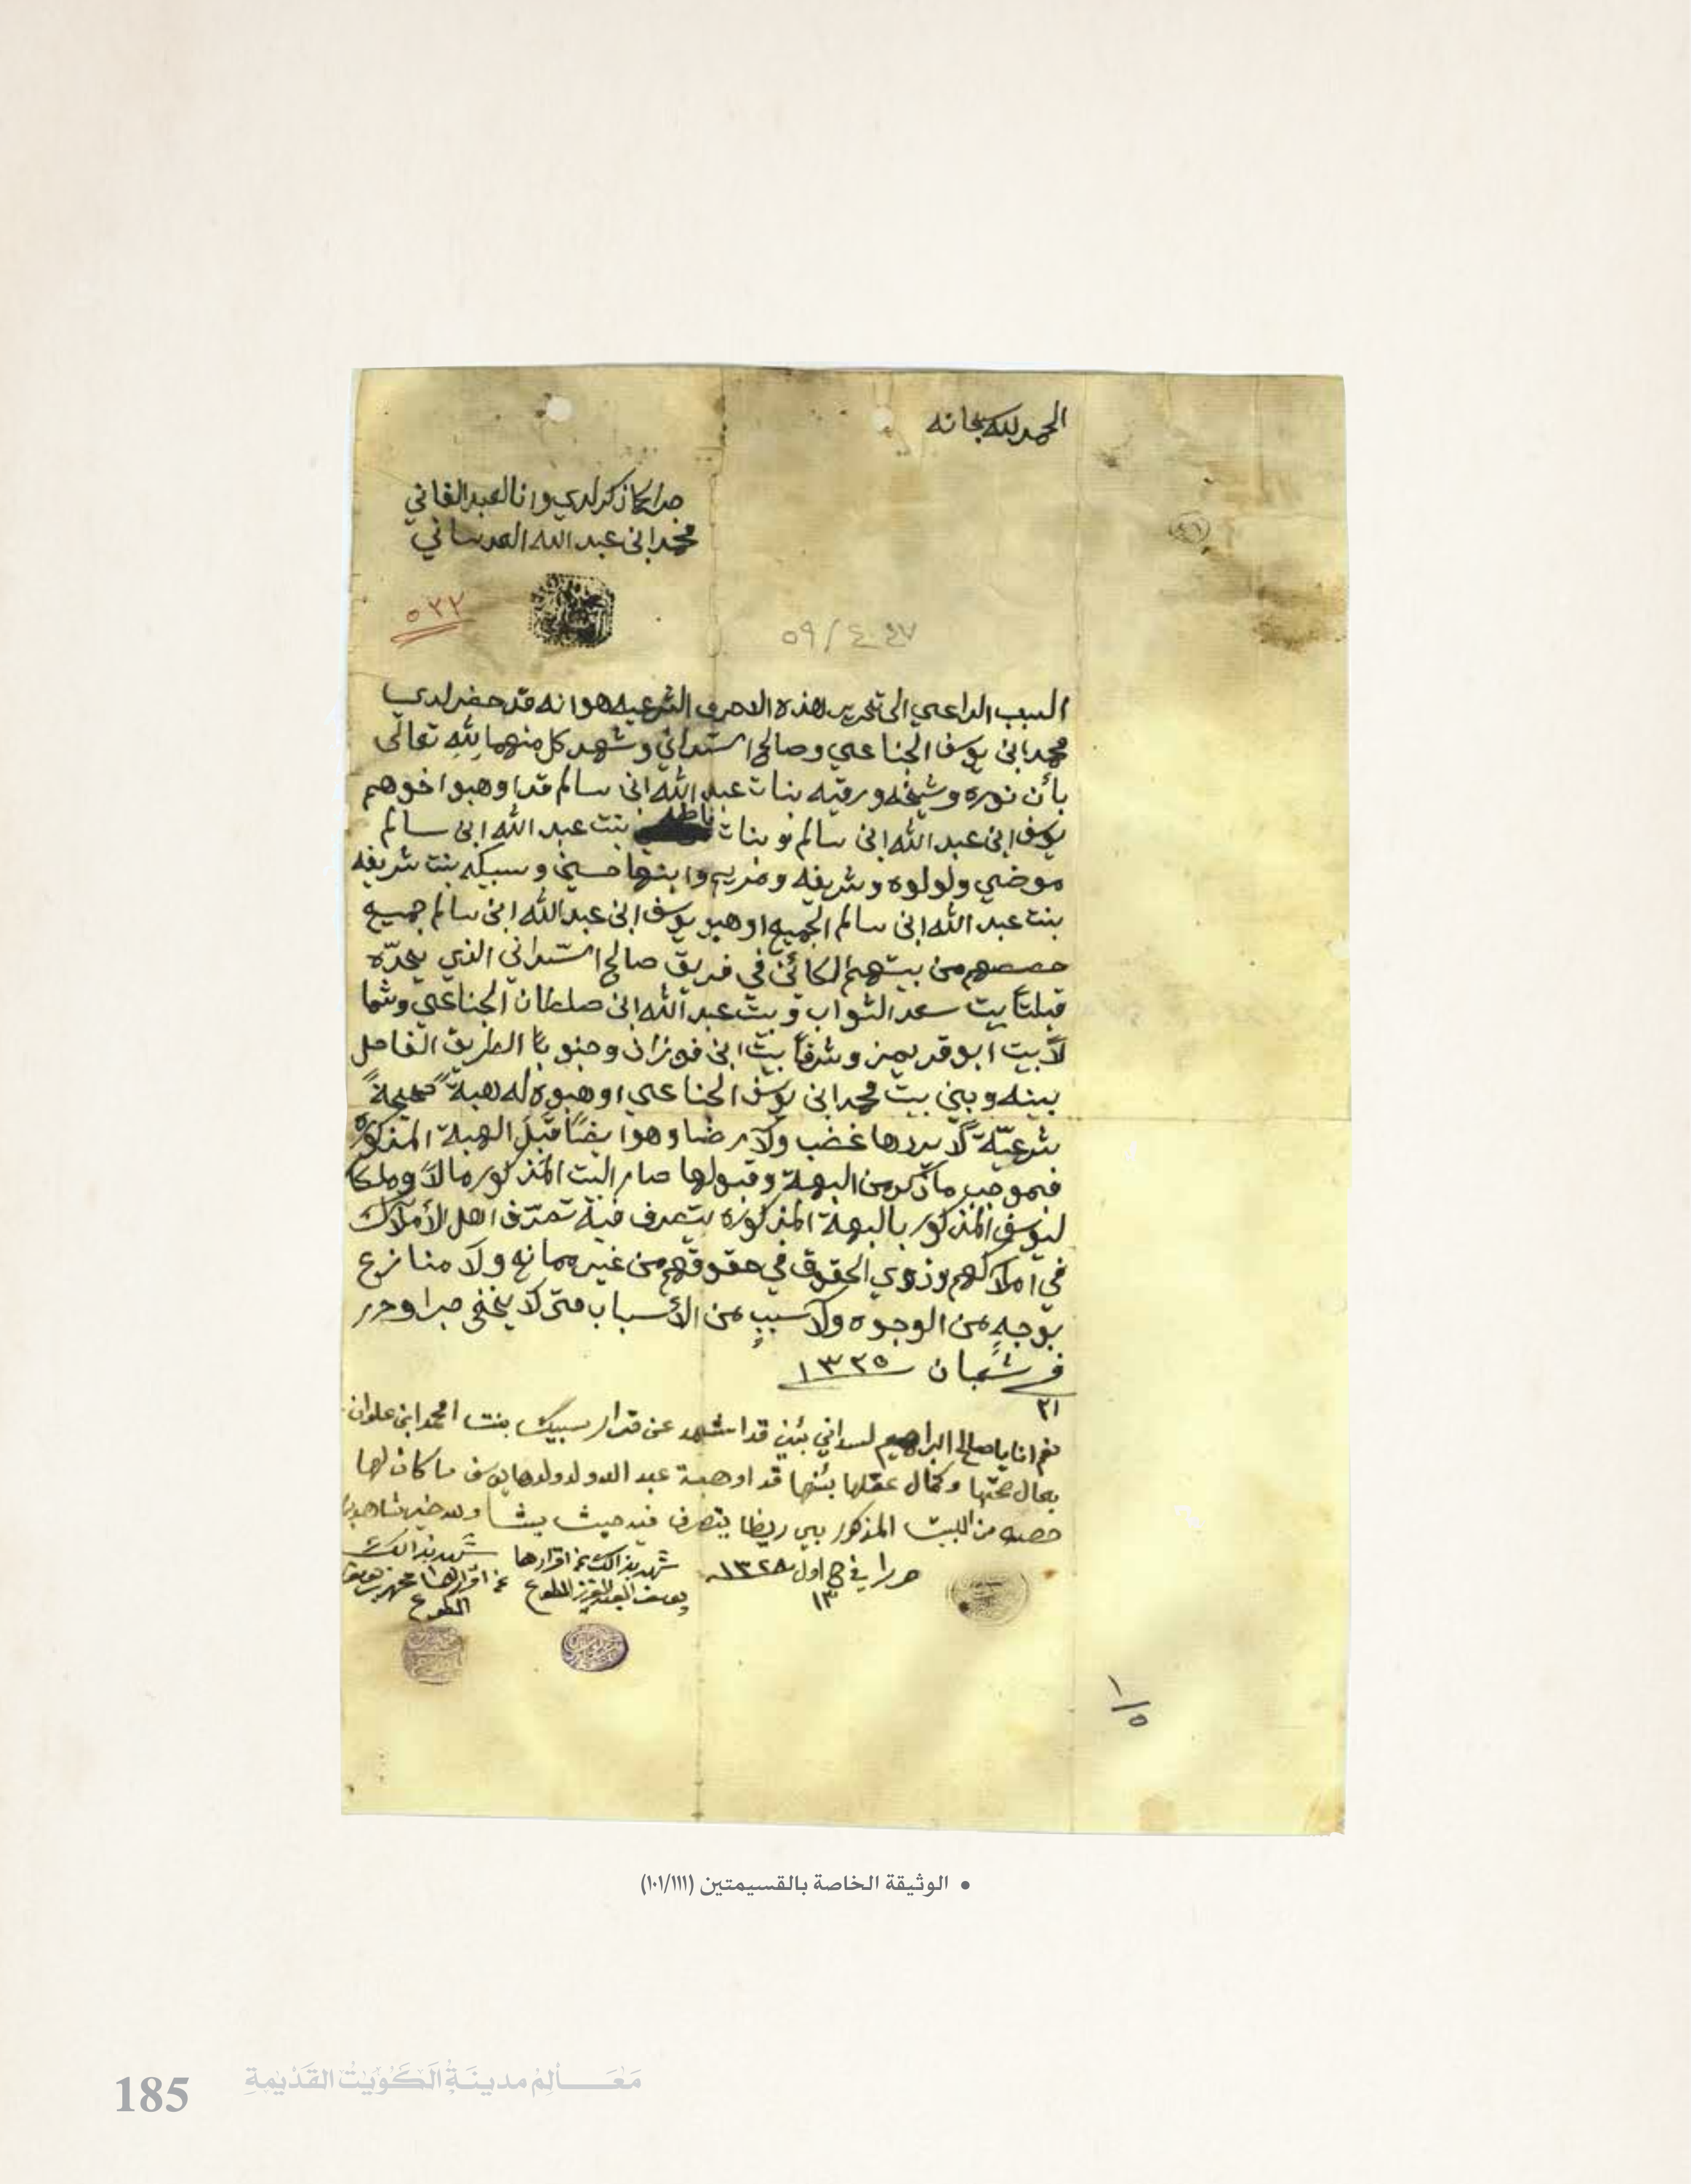 الحمد لله سبحانه
جرا كما ذكر لدي وانا العبد الفاني
محمد ابن عبد الله العدساني
٥٣٢
٤٠٤٧ / ٥٩
السبب الداعي الى تحرير هذه الاحرف الشرعيه هو انه قد حضر لدي
محمد ابن يوسف الجناعي وصالح استداني وشهد كل منهما بالله تعالى
بأن نوره وشيخه ورقيه بنات عبد الله ابن سالم قد اوهبوا اخوهم
يوسف ابن عبد الله ابن سالم وبنات فاطمه بنت عبد الله ابن سالم
موضي ولولوه وشريفه ومريم وابنها حسين وسبيكه بنت شريفه
بنت عبد الله ابن سالم الجميع اوهبو يوسف ابن عبد الله ابن سالم جميع
حصصهم من بيتهم الكائن في فريق صالح استداني الذي يحدّه
قبلتاً بيت سعد النواب وبيت عبد الله ابن صلطان الجناعي وشما
لاً بيت ابو قريمز وشرقاً بيت ابن فوزان وجنوباً الطريق الفاصل
بينه وبين بيت محمد ابن يوسف الجناعي اوهبوه له هبةً صحيحةً
شرعيّة لا يردها غضب ولا رضا وهو ايضاً قبل الهبة المذكوره
فبموجب ما ذكر من الهبة وقبولها صار البيت المذكور مالاً وملكا
ليوسف المذكور بالهبة المذكوره يتصرف فيه تصرّف اهل الأملاك
في املاكهم وذوي الحقوق في حقوقهم من غير ممانع ولا منازع
بوجهٍ من الوجوه ولا سببٍ من الأسباب حتى لا يخفى جرا وحرر
في شعبان ١٣٢٥
٢١
نعم انا يا صالح البراهيم لسداني بئني قد اشهد عن قرار سبيكه بنت امحمد ابن علوان
بحال صحتها وكمال عقلها بئنها قد اوهبة عبد الله ولدولدها يوسف ما كان لها
حصه من البيت المذكور يتصرف فيه حيث يشا والله خير شاهدين
حررا في ج اول ١٣٢٨
١٣
شهد بذالك عن اقرارها
يوسف العبد العزيز المطوع
شهد بذالك
عن اقرارها محمد بن يوسف
المطوع
١/٥
• الوثيقة الخاصة بالقسيمتين (١٠١/١١١)
185 مَعَالِمْ مدينَةِ الكُوَيْتْ القَدْيْمةِ